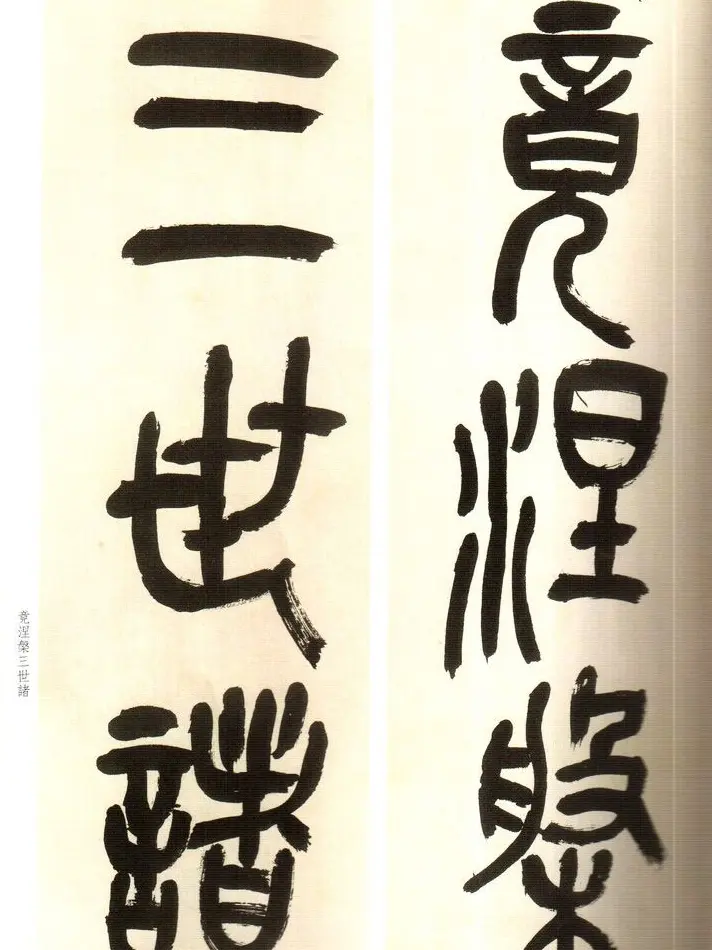 竟涅槃
三世諸
竟涅槃三世諸